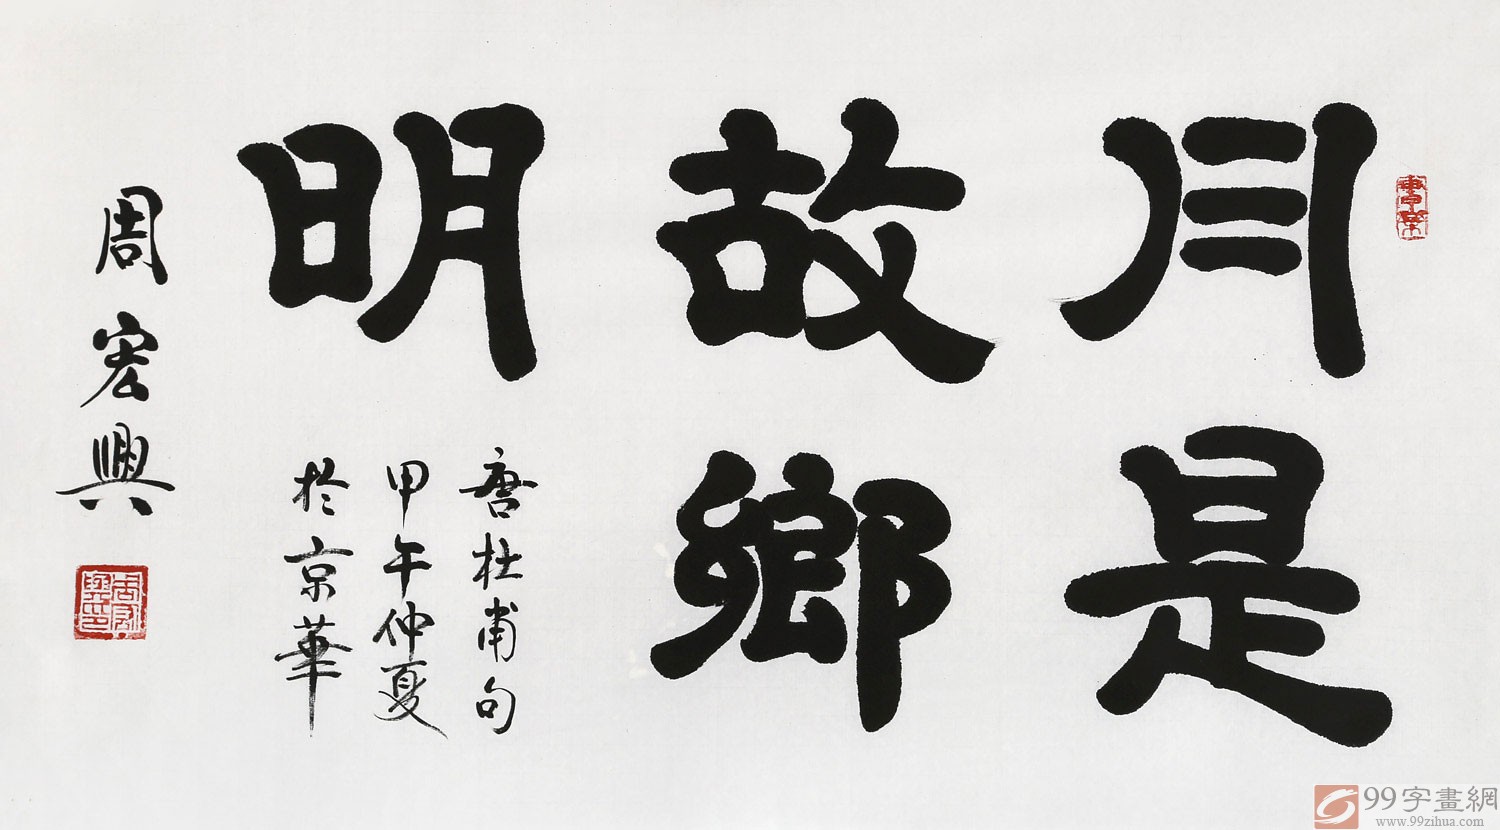 月是
故鄉
明
唐杜甫句
甲午仲夏
於京華
周宏興
99字畫網
www.99zihua.com